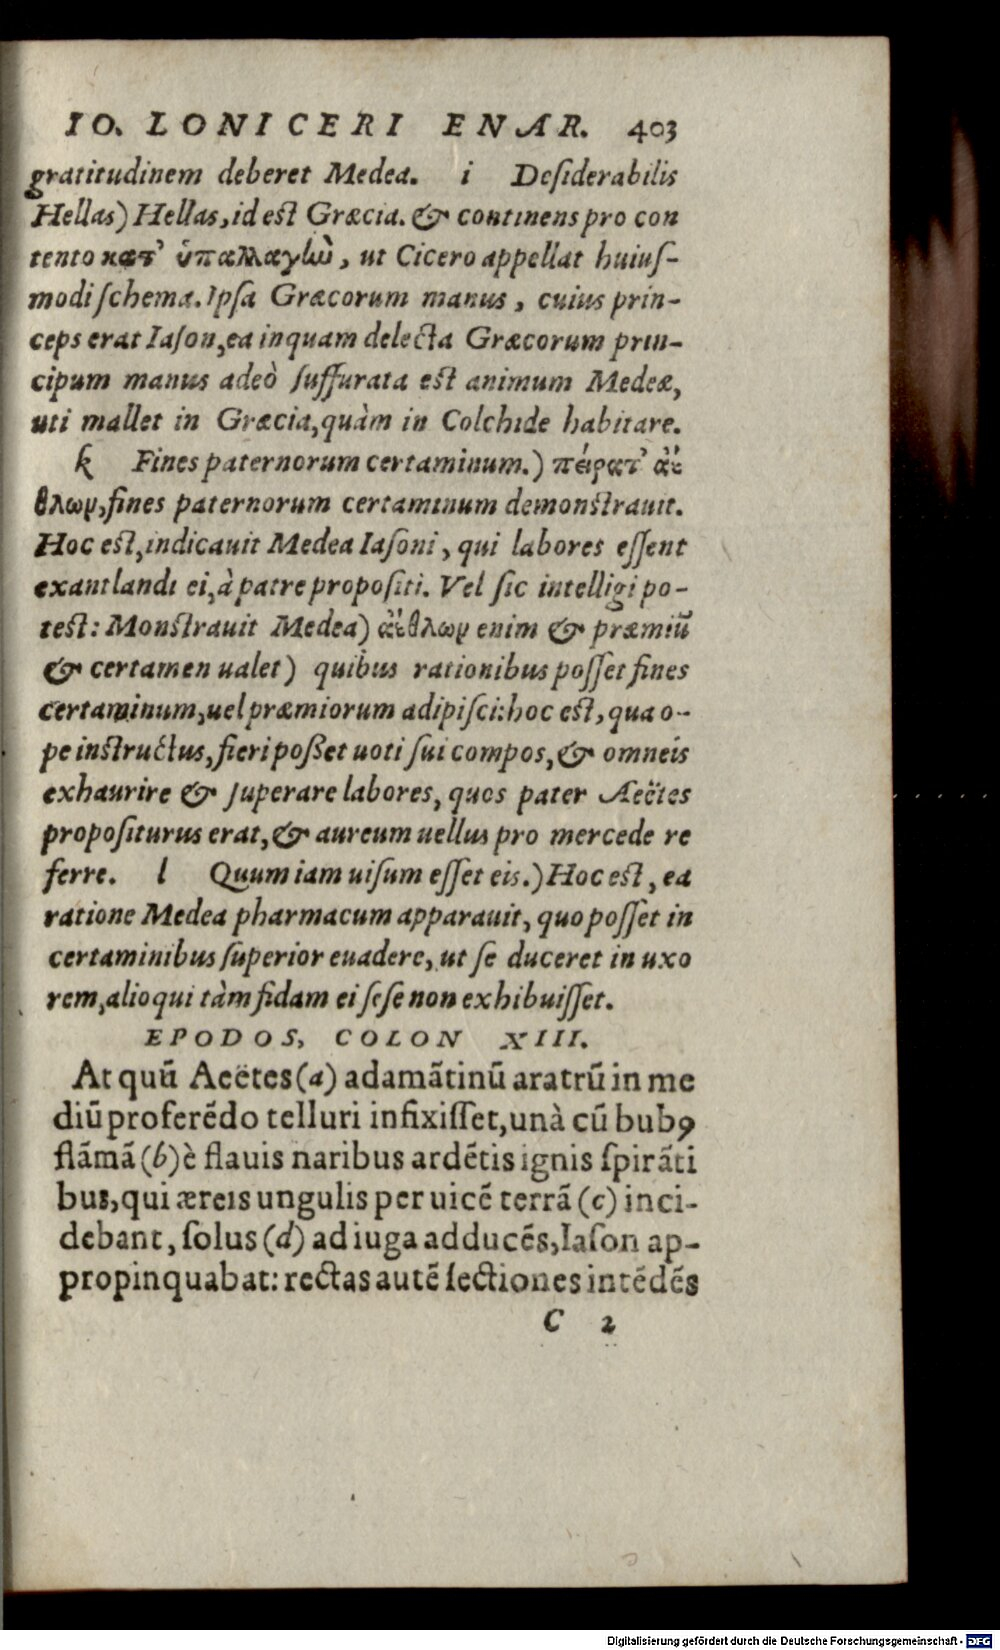 IO. LONICERI ENAR. 403
gratitudinem deberet Medea. i Deſiderabilis
Hellas) Hellas, id eſt Græcia. & continens pro con
tento κατ' ὑπαλλαγlὼ, ut Cicero appellat huiuſ-
modi ſchema. Ipſa Græcorum manus, cuius prin-
ceps erat Iaſon, ea inquam delecta Græcorum prin-
cipum manus adeò ſuffurata eſt animum Medeæ,
uti mallet in Græcia, quàm in Colchide habitare.
k Fines paternorum certaminum.) πείρατ' ἀέ
θλων, fines paternorum certaminum demonſtrauit.
Hoc eſt, indicauit Medea Iaſoni, qui labores eſſent
exantlandi ei, à patre propoſiti. Vel ſic intelligi po-
teſt: Monſtrauit Medea) ἀέθλων enim & præmiũ
& certamen ualet) quibus rationibus poſſet fines
certaminum, uel præmiorum adipiſci: hoc eſt, qua o-
pe inſtructus, fieri poßet uoti ſui compos, & omneis
exhaurire & ſuperare labores, quos pater Aeëtes
propoſiturus erat, & aureum uellus pro mercede re
ferre. l Quum iam uiſum eſſet eis.) Hoc eſt, ea
ratione Medea pharmacum apparauit, quo poſſet in
certaminibus ſuperior euadere, ut ſe duceret in uxo
rem, alioqui tàm fidam ei ſeſe non exhibuiſſet.
EPODOS, COLON XIII.
At quũ Aeëtes (a) adamãtinũ aratrũ in me
diũ proferẽdo telluri infixiſſet, unà cũ bubꝰ
flãmã (b) è flauis naribus ardẽtis ignis ſpirãti
bus, qui æreis ungulis per uicẽ terrã (c) inci-
debant, ſolus (d) ad iuga adducẽs, Iaſon ap-
propinquabat: rectas autẽ ſectiones intẽdẽs
C 2
Digitalisierung gefördert durch die Deutsche Forschungsgemeinschaft - DFG